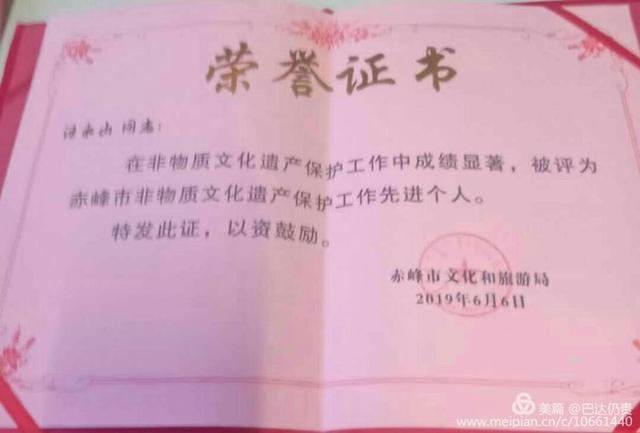 荣誉证书
同志：
在非物质文化遗产保护工作中成绩显著，被评为
赤峰市非物质文化遗产保护工作先进个人。
特发此证，以资鼓励。
赤峰市文化和旅游局
2019年6月6日
美篇 @巴达仍贵
www.meipian.cn/c/10661440